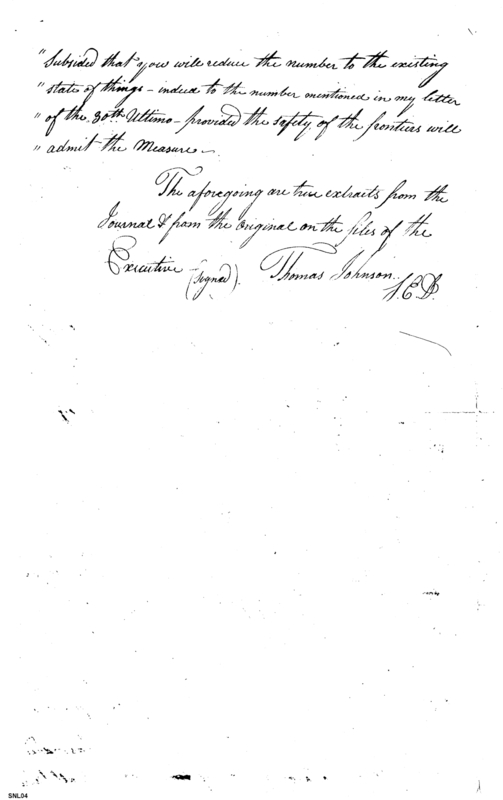 " Subsided that you will reduce the number to the existing
" state of things - indeed to the number mentioned in my letter
" of the 30th Ultimo - provided the safety of the frontiers will
" admit the Measure -
The aforegoing are true extracts from the
Journal & from the Original on the files of the
Executive (signed). Thomas Johnson.
S. E. D.
SNL04